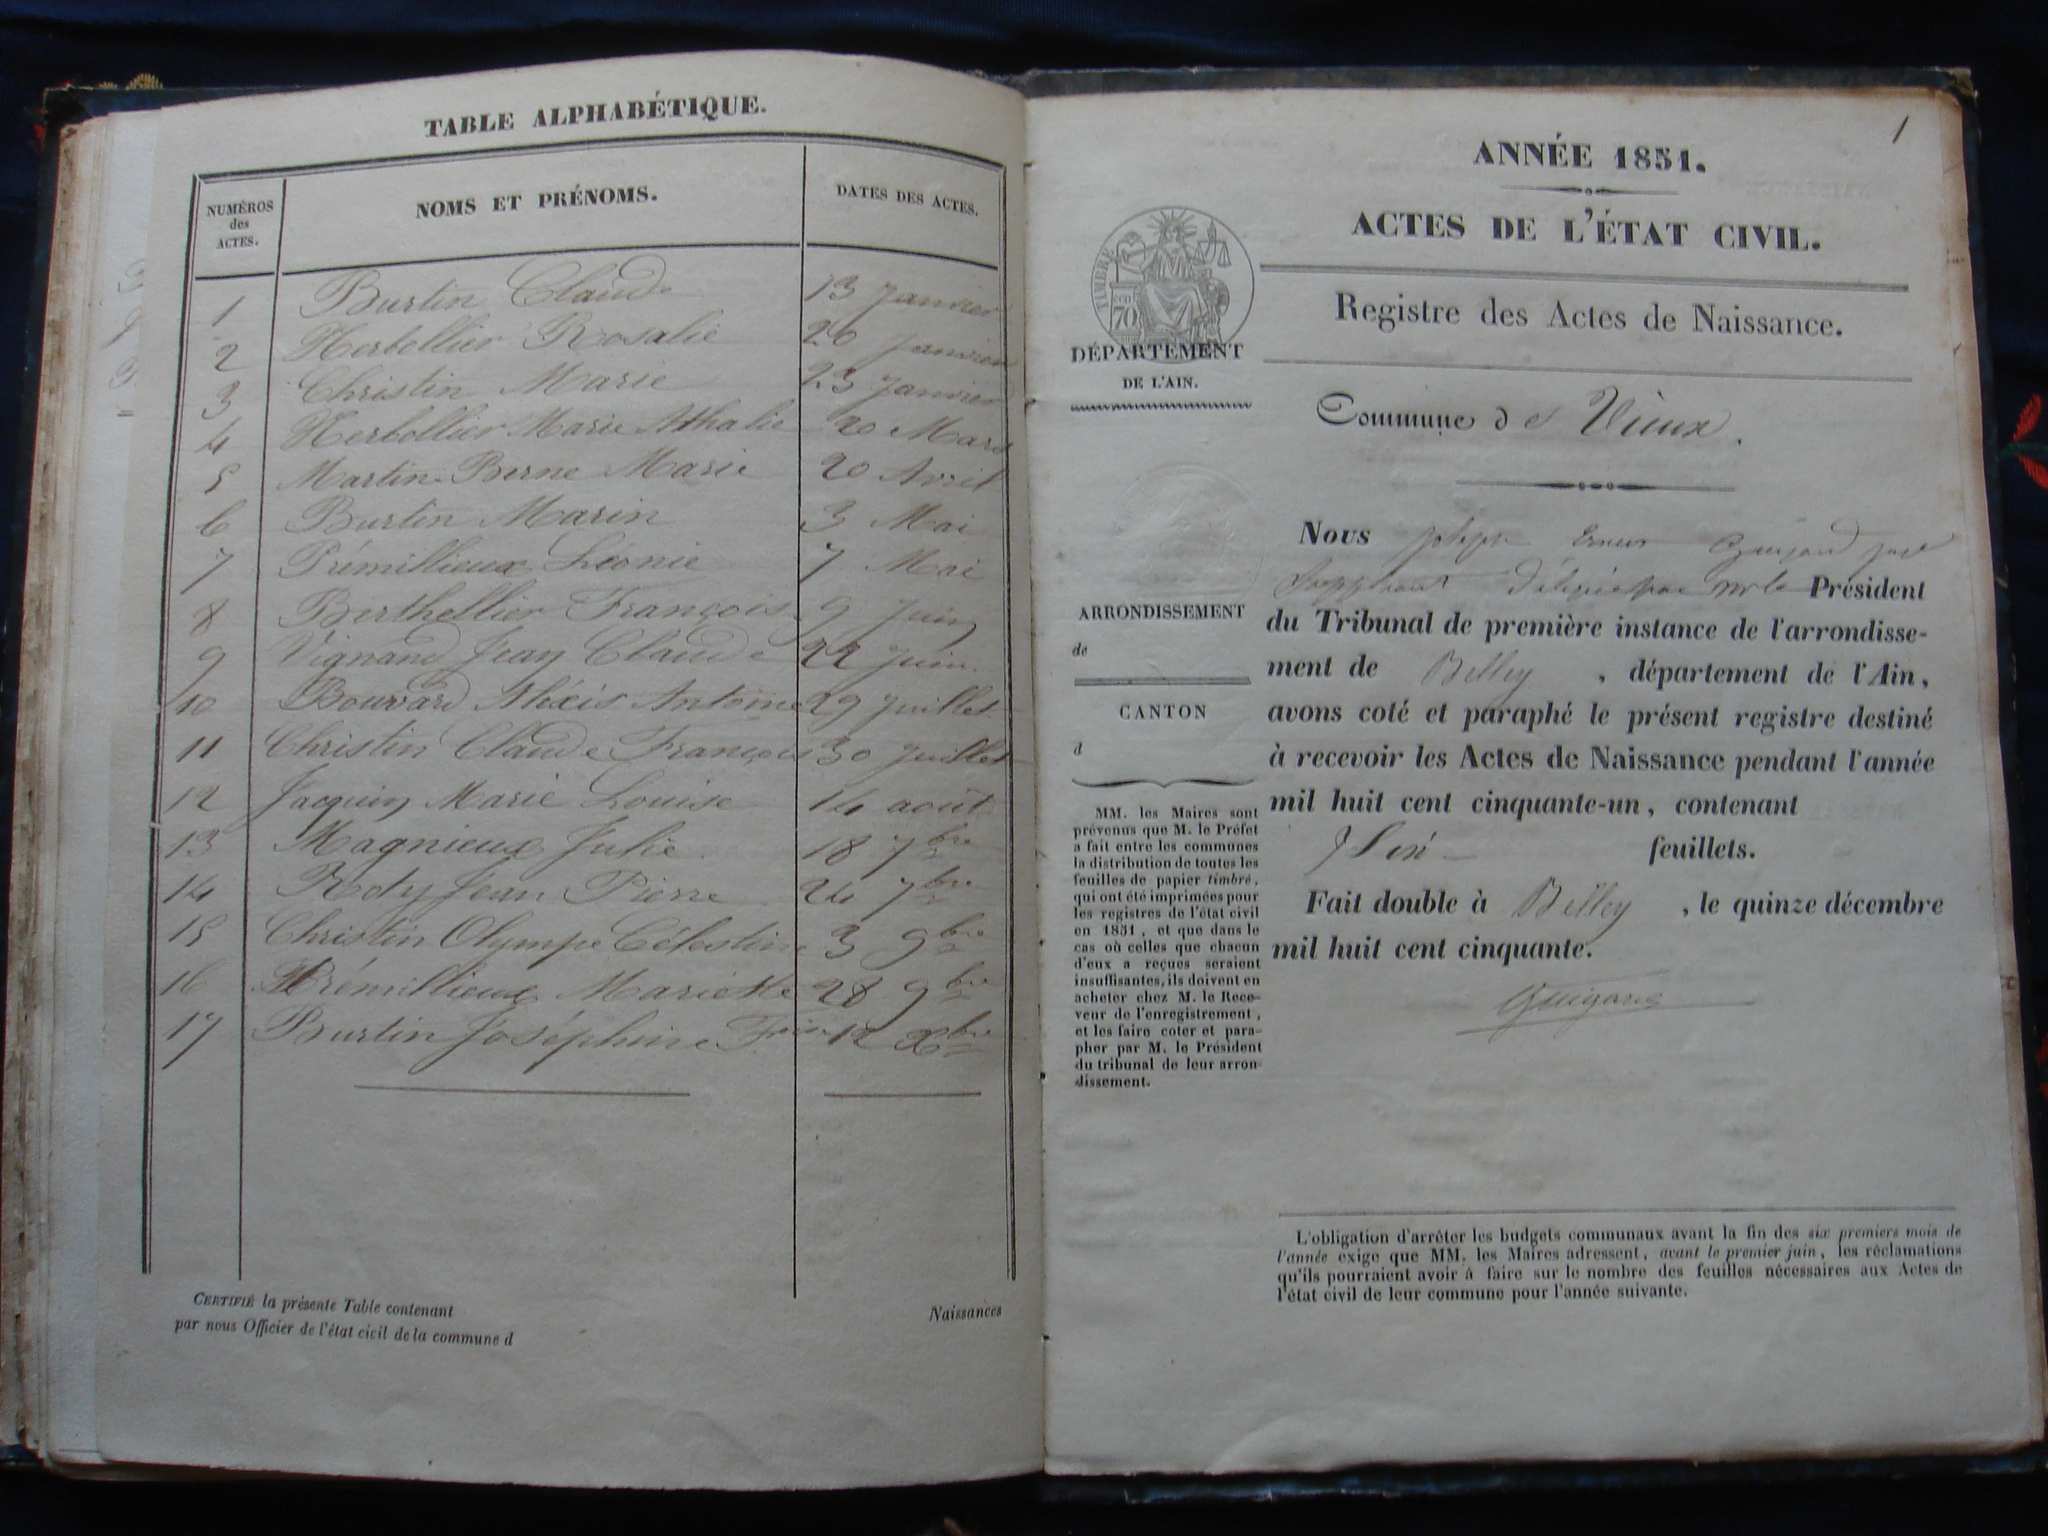 TABLE ALPHABÉTIQUE.
NUMÉROS des ACTES.
NOMS ET PRÉNOMS.
DATES DES ACTES.
1 Burtin Claude 13 Janvier
2 Herbellier Rosalie 20 Janvier
3 Christin Marie 23 Janvier
4 Herbellier Marie Athalie 20 Mars
5 Martin-Berne Marie 20 Avril
6 Burtin Marin 3 Mai
7 Prémillieux Léonie 7 Mai
8 Berthellier François 9 Juin
9 Vignand Jean Claude 22 Juin.
10 Bouvard Aléxis Antoine 29 Juillet
11 Christin Claude François 30 Juillet
12 Jacquin Marie Louise 14 août
13 Magnieux Julie 18 7bre
14 Rody Jean Pierre 24 7bre
15 Christin Olympe Célestine 3 9bre
16 Prémillieux Mariette 28 9bre
17 Burtin Joséphine 12 Xbre
CERTIFIÉ la présente Table contenant Naissances
par nous Officier de l'état civil de la commune d
1
ANNÉE 1851.
ACTES DE L'ÉTAT CIVIL.
Registre des Actes de Naissance.
TIMBRE
70
DÉPARTEMENT
DE L'AIN.
Commune de Vieux.
ARRONDISSEMENT
de
CANTON
d
MM. les Maires sont
prévenus que M. le Préfet
a fait entre les communes
la distribution de toutes les
feuilles de papier timbré,
qui ont été imprimées pour
les registres de l'état civil
en 1851, et que dans le
cas où celles que chacun
d'eux a reçues seraient
insuffisantes, ils doivent en
acheter chez M. le Rece-
veur de l'enregistrement,
et les faire coter et para-
pher par M. le Président
du tribunal de leur arron-
dissement.
Nous Joseph
Suppléant Président
du Tribunal de première instance de l'arrondisse-
ment de Belley, département de l'Ain,
avons coté et paraphé le présent registre destiné
à recevoir les Actes de Naissance pendant l'année
mil huit cent cinquante-un, contenant
feuillets.
Fait double à Belley, le quinze décembre
mil huit cent cinquante.
L'obligation d'arrêter les budgets communaux avant la fin des six premiers mois de
l'année exige que MM. les Maires adressent, avant le premier juin, les réclamations
qu'ils pourraient avoir à faire sur le nombre des feuilles nécessaires aux Actes de
l'état civil de leur commune pour l'année suivante.